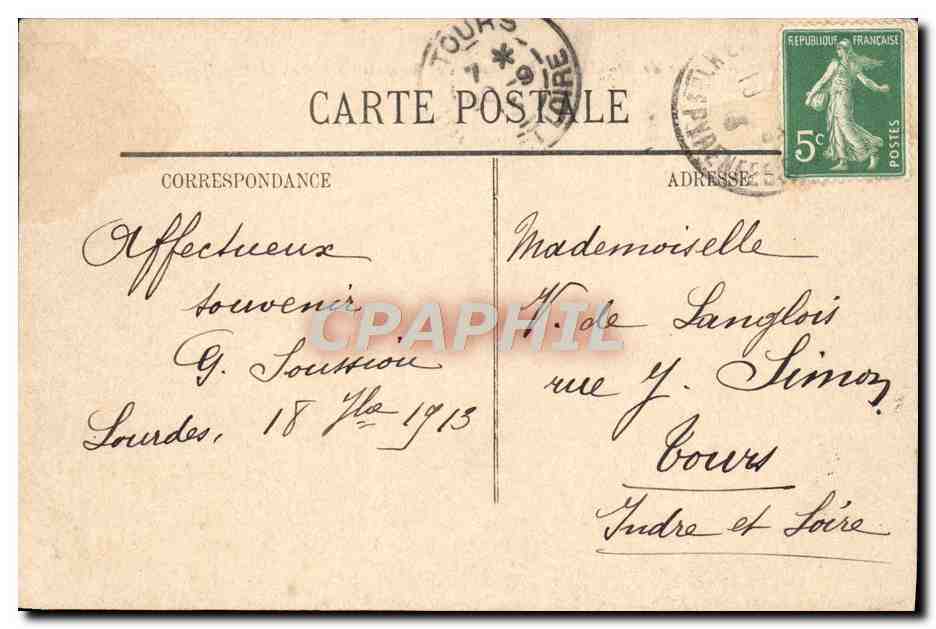 TOURS
7 * 9
LOIRE
REPUBLIQUE FRANÇAISE
5c
POSTES
CARTE POSTALE
CORRESPONDANCE
ADRESSE
Affectueux
souvenir
G. Soussiou
Lourdes, 18 7bre 1913
Mademoiselle
V. de Langlois
rue J. Simon
Tours
Indre et Loire
CPAPHIL